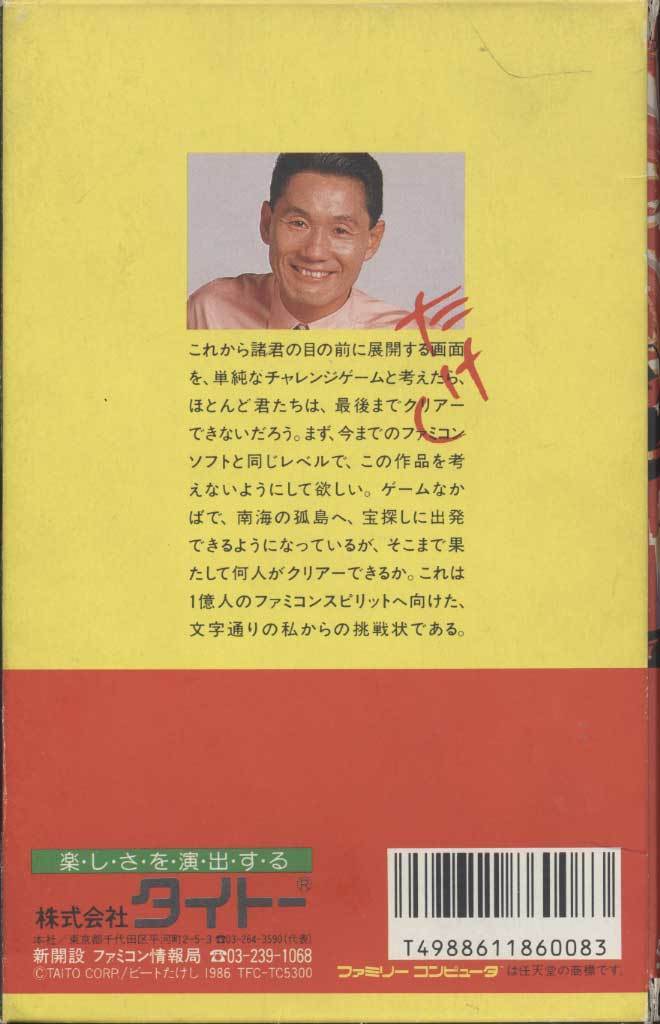 たけし
これから諸君の目の前に展開する画面
を、単純なチャレンジゲームと考えたら、
ほとんど君たちは、最後までクリアー
できないだろう。まず、今までのファミコン
ソフトと同じレベルで、この作品を考
えないようにして欲しい。ゲームなか
ばで、南海の孤島へ、宝探しに出発
できるようになっているが、そこまで果
たして何人がクリアーできるか。これは
1億人のファミコンスピリットへ向けた、
文字通りの私からの挑戦状である。
楽・し・さ・を・演・出・す・る
株式会社 タイトー®
本社/東京都千代田区平河町2-5-3 ☎03-264-3590(代表)
新開設 ファミコン情報局 ☎03-239-1068
©TAITO CORP./ビートたけし 1986 TFC-TC5300
T4988611860083
ファミリー コンピュータ は任天堂の商標です。